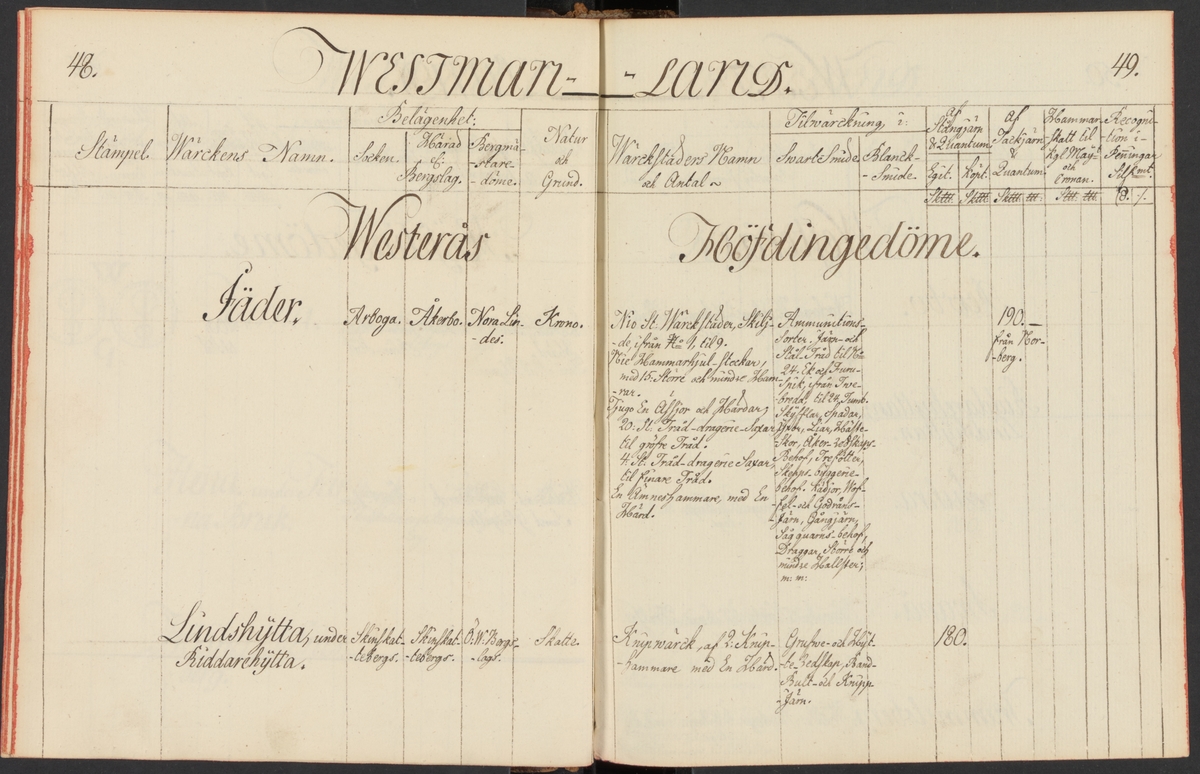 48.
WESTMAN-
-LAND.
49.
Stämpel.
Wärckens Namn.
Belägenhet:
Socken.
Härad
&
Bergslag.
Bergmä-
-stare-
-döme.
Natur
och
Grund.
Wärckstäders Namn
och Antal
Tilwärckning, i:
Swart Smide.
Blanck-
-Smide.
af
Stångjärn
& Quantum.
Egit.
Köpt.
af
Tackjärn
&
Quantum.
Hammar-
-Skatt til
Kgl Maÿt
och
Cronan.
Recogni-
tion i
Penningar
Silf.mt.
Westerås
Höfdingedöme.
Jäder.
Arboga.
Åkerbo.
Nora Lin-
-des.
Krono.
Nio St. Wärckstäder, Skilj-
-de, ifrån No 1, til 9.
Nie Hammarhjul-stockar,
med 15. Större och mindre Ham-
-rar.
Tjugo En Ässjor och Härdar;
20: St. Tråd-dragerie-Saxar
til gröfre Tråd.
4: St. Tråd-dragerie Saxar,
til finare Tråd.
En Ämneshammare, med En
Härd.
Ammunitions-
Sorter. Järn- och
Stål-Tråd til No
24. Ek och Furu-
Spik, ifrån Twe-
bredd, til 24, Tumb.
Skyfflar, Spadar,
Yxor, Liar, Häste-
Skor, Åker-redskaps-
Behof, Trefötter,
Skepps-byggerie-
behof. Kädjor, Wåf-
fel- och Godråns-
-Järn, Gångjärn,
Såg quarns-behof,
Draggar, Större och
mindre Hallster;
m: m:
190.—
från Nor-
berg.
Lindshytta, under
Riddarehytta.
Skinskat-
-tebergs.
Skinskat-
-tebergs.
Ö. W. Bergs-
-lags.
Skatte.
Knipwärck, af 2: Knip-
-hammare med En Härd.
Grufwe- och Hyt-
-te-Redskap, Band
Bult- och Knipp-
-Järn.
180.